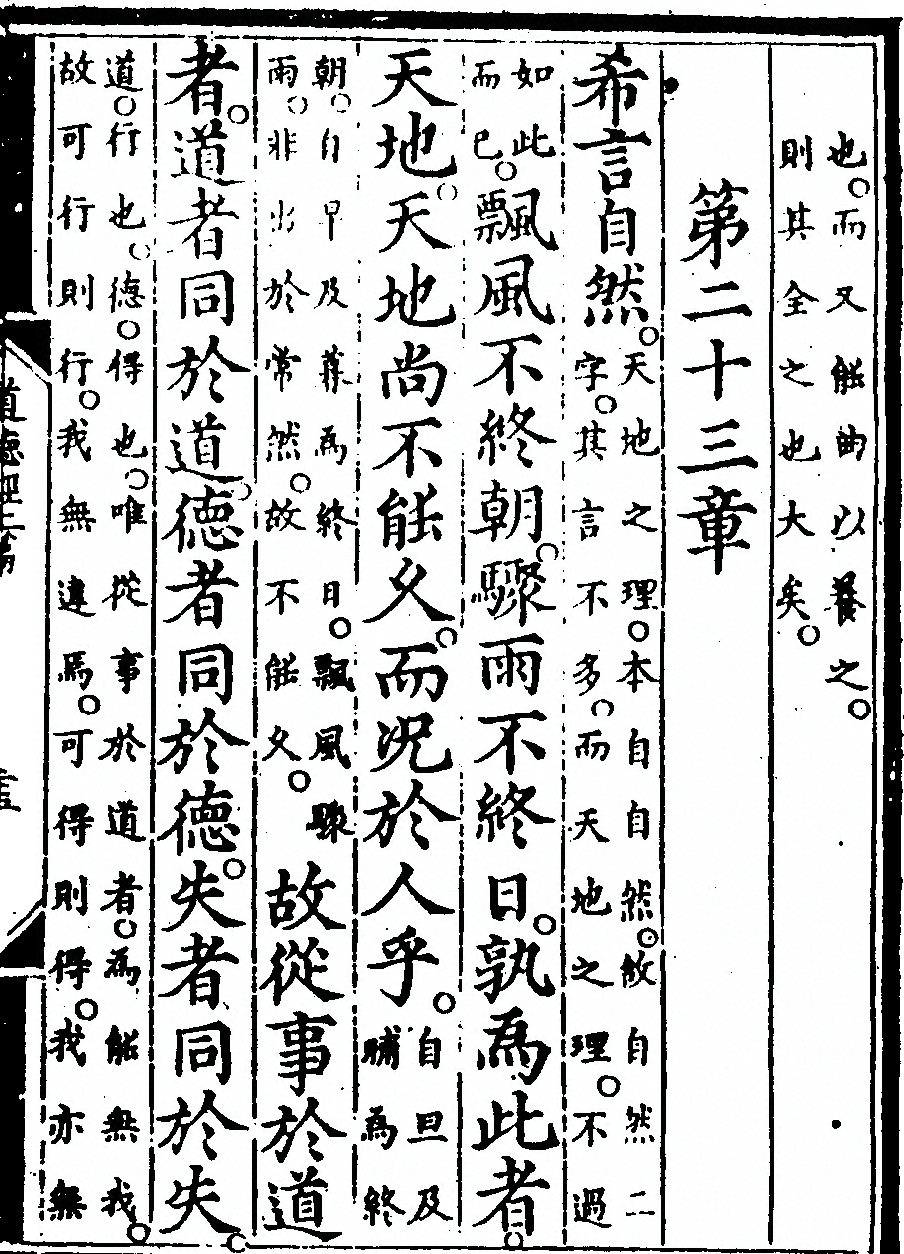 也。而又能曲以養之。
則其全之也大矣。
第二十三章
希言自然。
天地之理。本自自然。故自然二
字。其言不多。而天地之理。不過
如此
而已。
飄風不終朝。驟雨不終日。孰為此者。
天地。天地尚不能久。而況於人乎。
自旦及
晡為終
朝。自早及莫為終日。飄風驟
雨。非出於常然。故不能久。
故從事於道
者。道者同於道。德者同於德。失者同於失。
道。行也。德。得也。唯從事於道者。為能無我。
故可行則行。我無違焉。可得則得。我亦無
道德經上篇